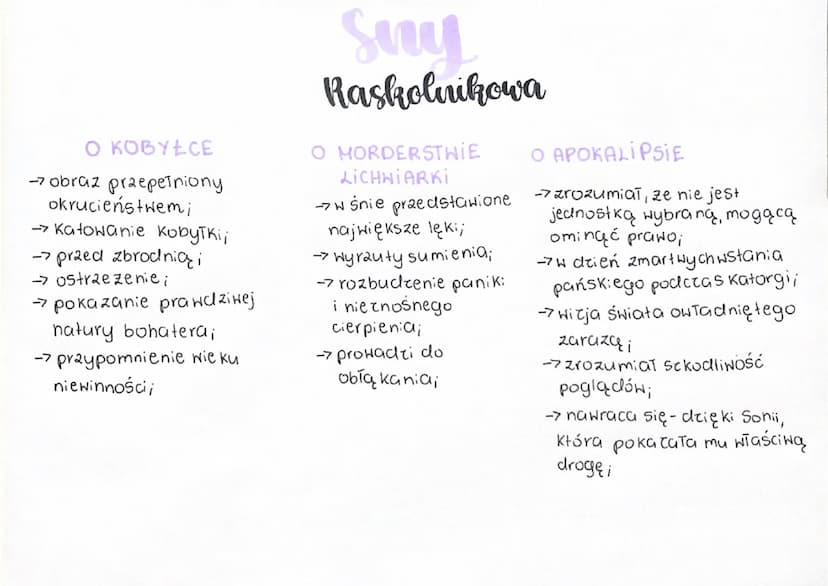 Sny
Raskolnikowa
O KOBYŁCE
→ obraz przepełniony
okrucieństwem;
→ katowanie kobyłki;
→ przed zbrodnią;
→ ostrzeżenie;
→ pokazanie prawdziwej
natury bohatera;
→ przypomnienie wieku
niewinności;
O MORDERSTWIE
LICHWIARKI
→ w śnie przedstawione
największe lęki;
→ wyrzuty sumienia;
→ rozbudzenie paniki
i nieznośnego
cierpienia;
→ prowadzi do
obłąkania;
O APOKALIPSIE
→ zrozumiał, że nie jest
jednostką wybraną, mogącą
ominąć prawo;
→ w dzień zmartwychwstania
pańskiego podczas katorgi;
→ wizja świata owładniętego
zarazą;
→ zrozumiał szkodliwość
poglądów;
→ nawraca się - dzięki Sonii,
która pokazała mu właściwą
drogę;